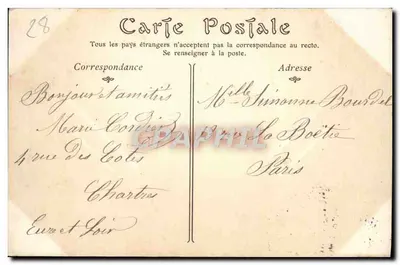 28
Carte Postale
Tous les pays étrangers n'acceptent pas la correspondance au recto.
Se renseigner à la poste.
Correspondance
Adresse
Bonjour et amitiés
Marie
4 rue des
Chartres
Eure et Loir
Melle Simonne Bourdel
rue La Boëtie
Paris